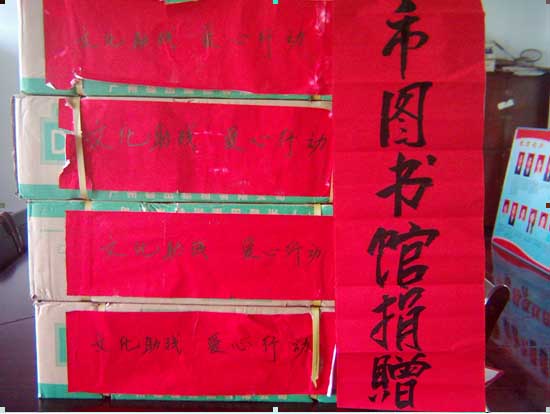 文化助残 爱心行动
文化助残 爱心行动
文化助残 爱心行动
文化助残 爱心行动
市图书馆捐贈